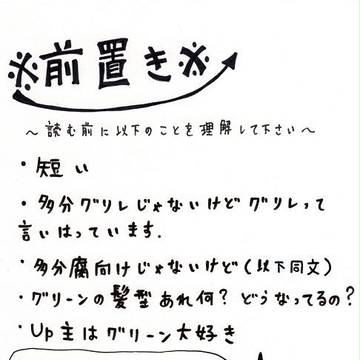 ※前置き※
～読む前に以下のことを理解して下さい～
・短い
・多分グリレじゃないけどグリレって
言いはっています.
・多分腐向けじゃないけど(以下同文)
・グリーンの髪型あれ何?どうなってるの?
・Up主はグリーン大好き